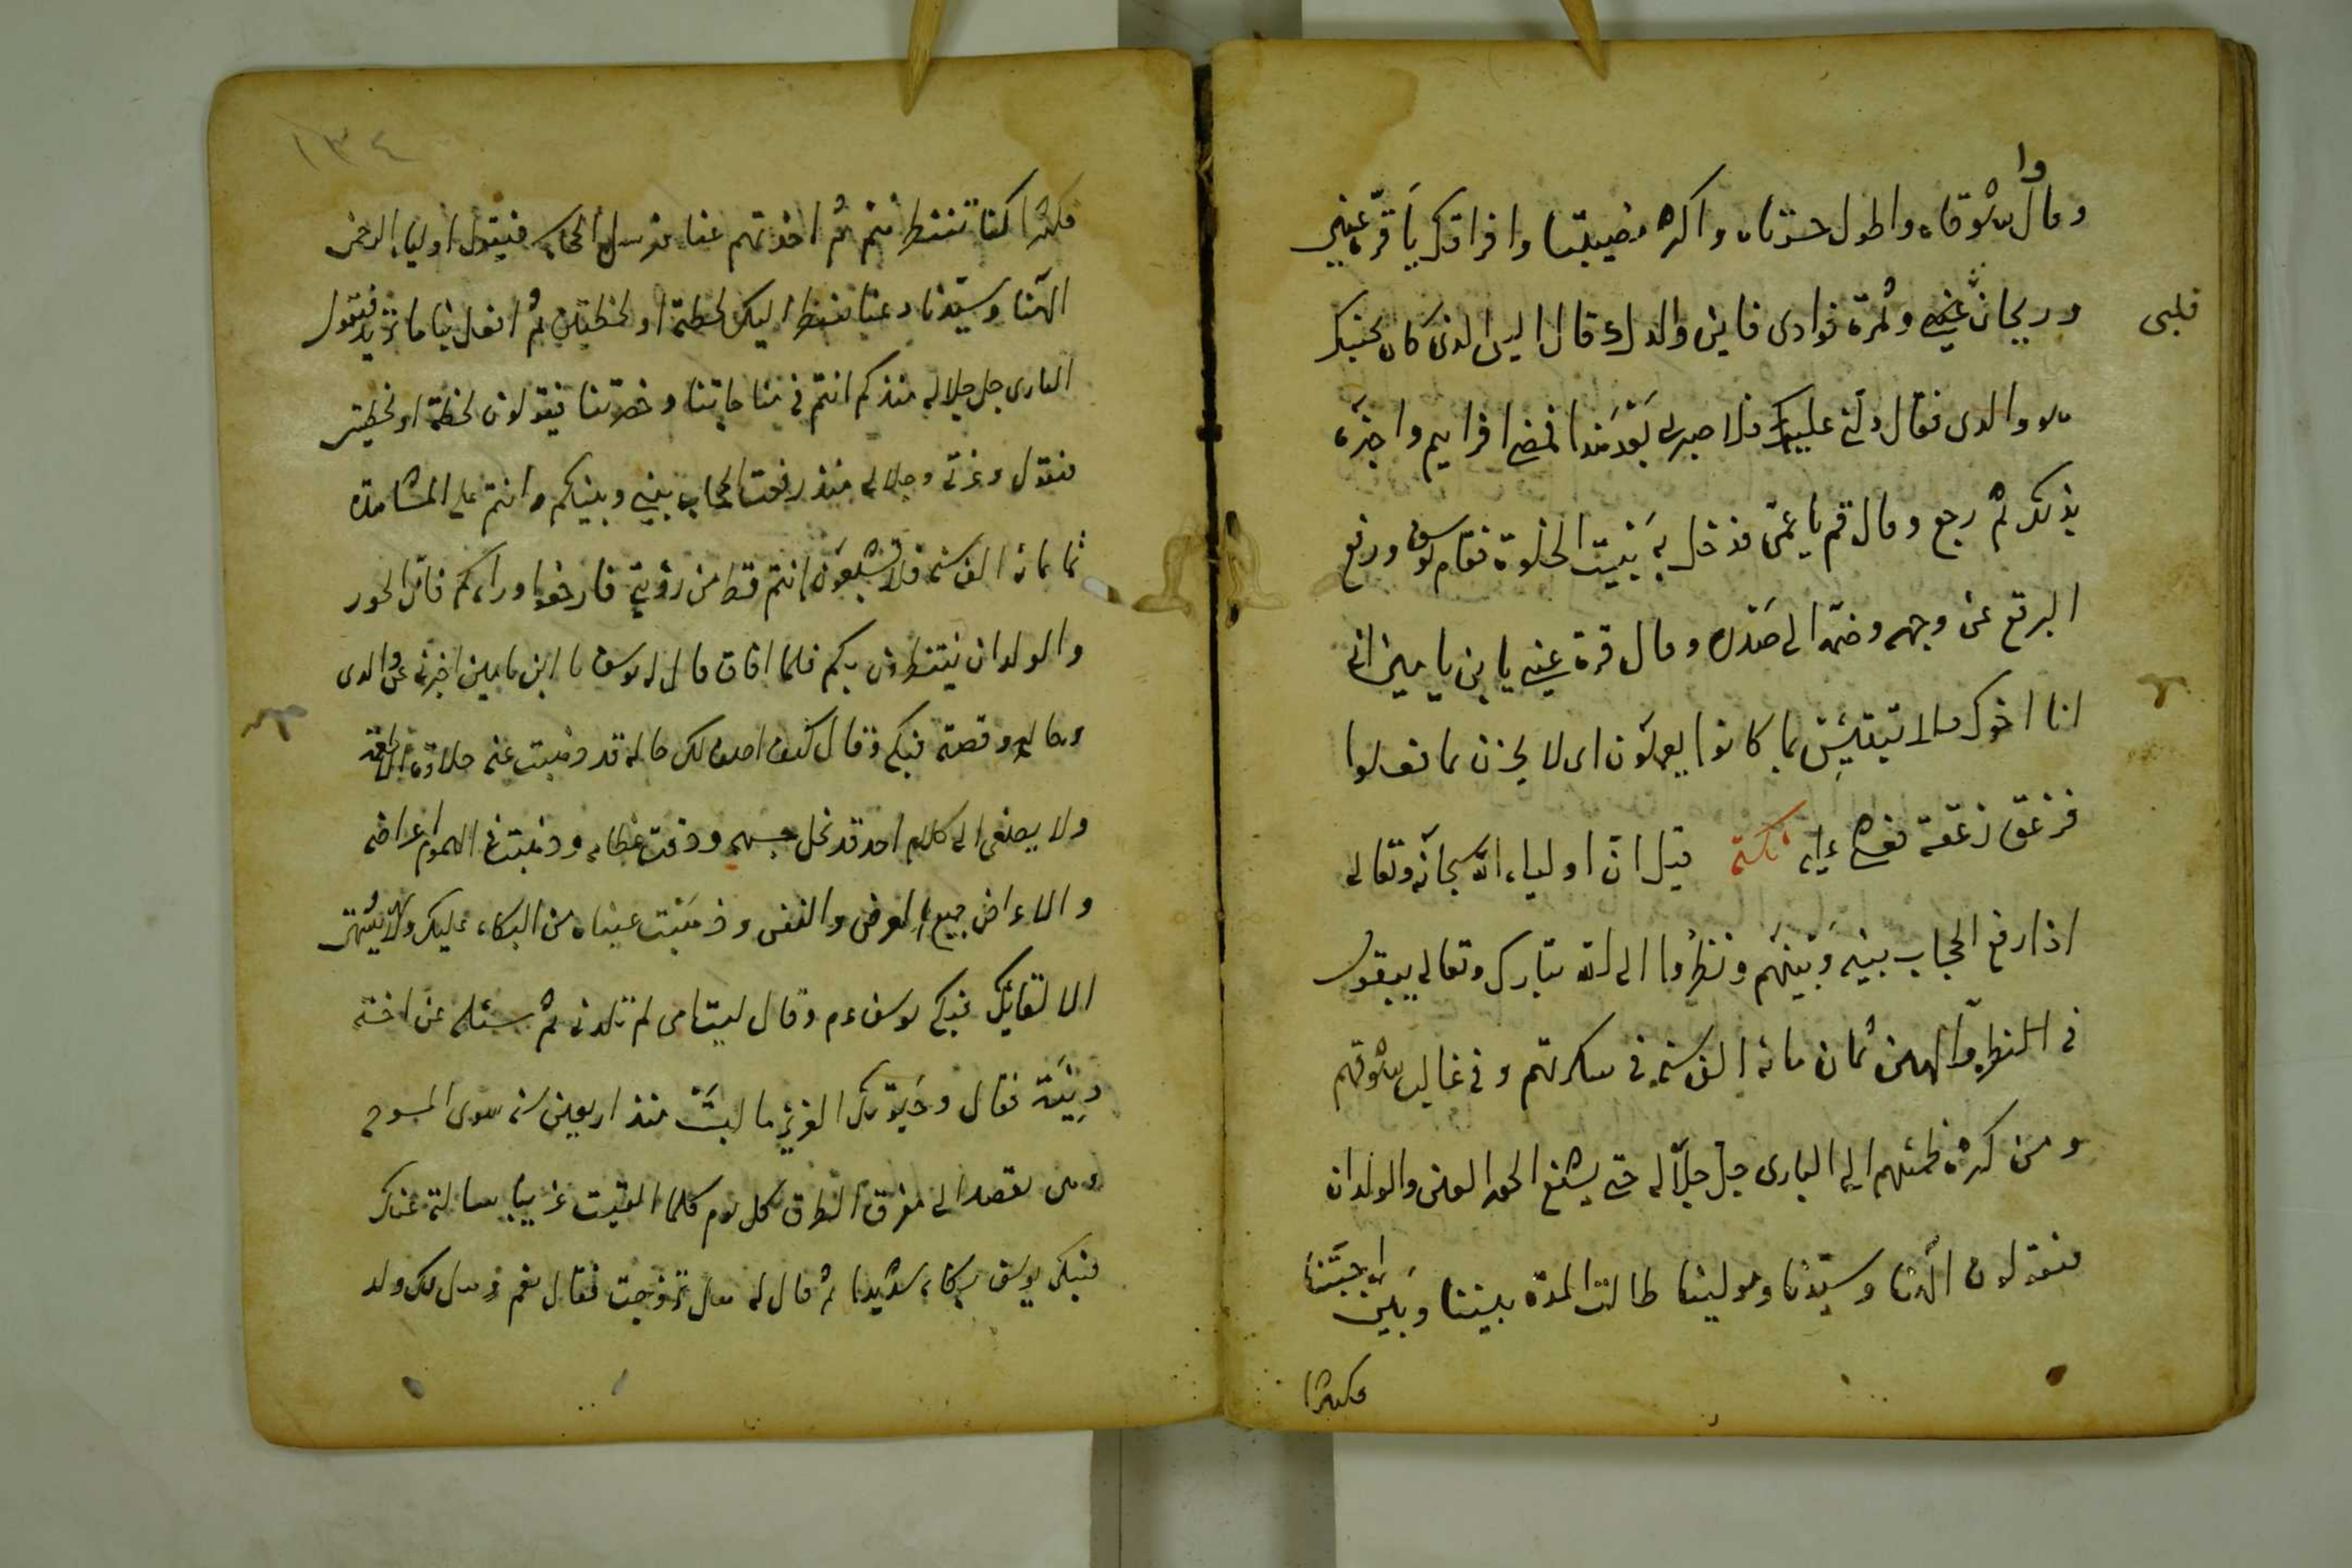 وقال واشوقاه واطول حسرتاه واكثر مصيبتاه وافراقك يا قرة عيني
وريحان قلبي وثمرة فوادى فاين والدك قال اليس الذى كان بجنبك
هو والدى فقال دلني عليه فلا صبر لي بعد هذا فمضى افرايم واخبره
بذلك ثم رجع وقال قم يا عمى فدخل به بيت الخلوة فقام يوسف ورفع
البرقع عن وجهه وضمه الى صدره وقال قرة عيني يا بن يامين اني
انا اخوك فلا تبتئس بما كانوا يعملون اى لا تحزن بما فعلوا
فزعق زعقة فغشي عليه نكتة قيل ان اولياء الله سبحانه وتعالى
اذا رفع الحجاب بينه وبينهم ونظروا الى الله تبارك وتعالى يبقون
في النظر والهين ثمان مائة الف سنة في سكرتهم وفي غاليب شوقهم
ومن كثرة نظرهم الى البارى جل جلاله حتى يشفع الحور العين والولدان
فيقولون الهنا وسيدنا ومولينا طالت المدة بيننا وبين احبتنا
هكذا
١٣٤
هكذا كنا ننتظر منهم ثم اخذتهم عنا فيرسل الحجاب فيقول اولياء الرحمن
الهنا وسيدنا دعنا ننظر اليك لحظة او لحظتين ثم افعل بنا ما تريد فيقول
البارى جل جلاله منذ كم انتم في مناجاتنا وحضرتنا فيقولون لحظة او لحظتين
فيقول وعزتي وجلالي منذ رفعت الحجاب بيني وبينكم وانتم على المشاهدة
ثمانمائة الف سنة فلا تشبعون انتم قط من رؤيتي فارجعوا وراءكم فان الحور
والولدان ينتظرون بكم فلما افاق قال له يوسف يا ابن يامين اخبرني عن والدى
وحاله وقصته فبكى وقال كيف اصف لك حاله قد ذهبت عنه حلاوة
ولا يصغى الى كلام احد قد نحل جسمه ودقت عظامه وذهبت في الهموم اعراضه
والاعراض جميع العرض والنفس وذهبت عيناه من البكاء عليك ولا يشتهى
الا لقائك فبكى يوسف عم وقال ليت امى لم تلدنى ثم سئله عن اخته
دينة فقال وحيوتك العزيز ما لبست منذ اربعين سنة سوى المسوح
وهى تقصد الى مفرق الطرق كل يوم كلما لقيت غريبا سالته عنك
فبكى يوسف بكاء شديدا ثم قال له هل تزوجت فقال نعم وهل لك ولد